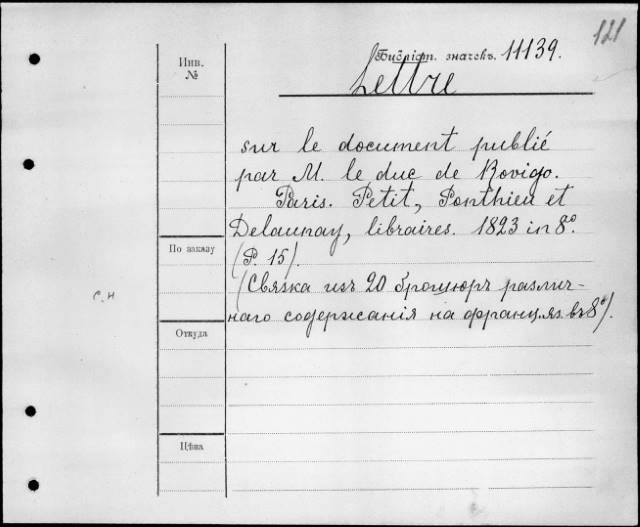 121
Библіот. значекъ. 11139.
Инв.
№
Lettre
sur le document publié
par M. le duc de Rovigo.
Paris. Petit, Ponthieu et
Delaunay, libraires. 1823 in 8°.
По заказу
(P. 15).
(Связка изъ 20 брошюръ различ-
с.н
наго содержанія на франц. яз. въ 8°).
Откуда
Цѣна